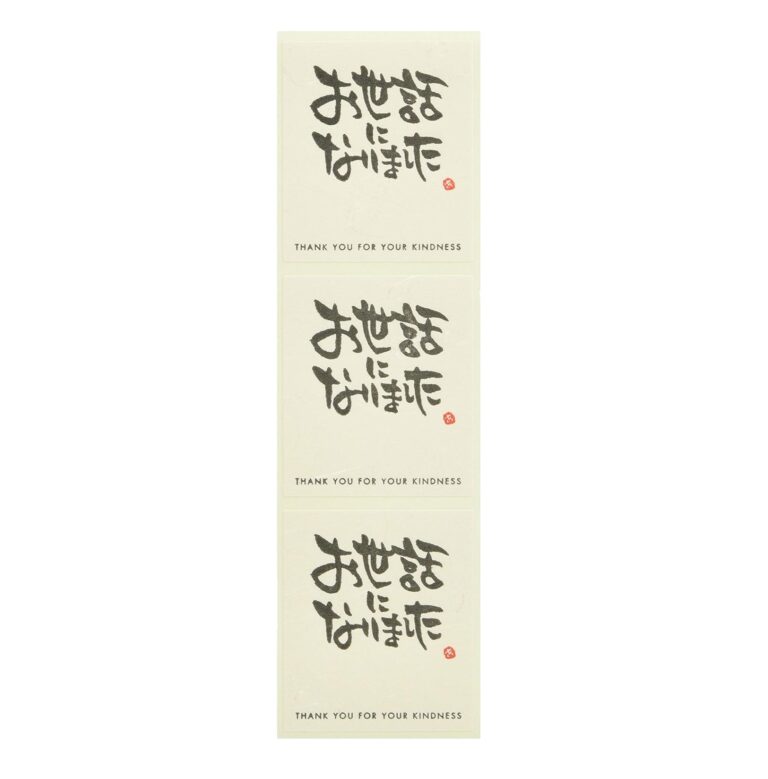 お世話
に
なりました
THANK YOU FOR YOUR KINDNESS
お世話
に
なりました
THANK YOU FOR YOUR KINDNESS
お世話
に
なりました
THANK YOU FOR YOUR KINDNESS